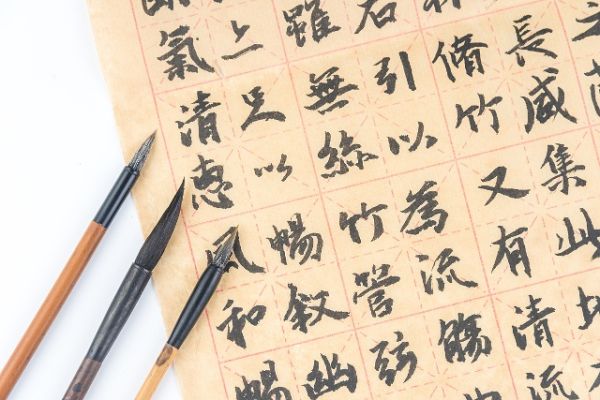 長咸集此
脩竹又有清流
右引以為流觴
雖無絲竹管弦
亦足以暢敘幽
氣清惠風和暢